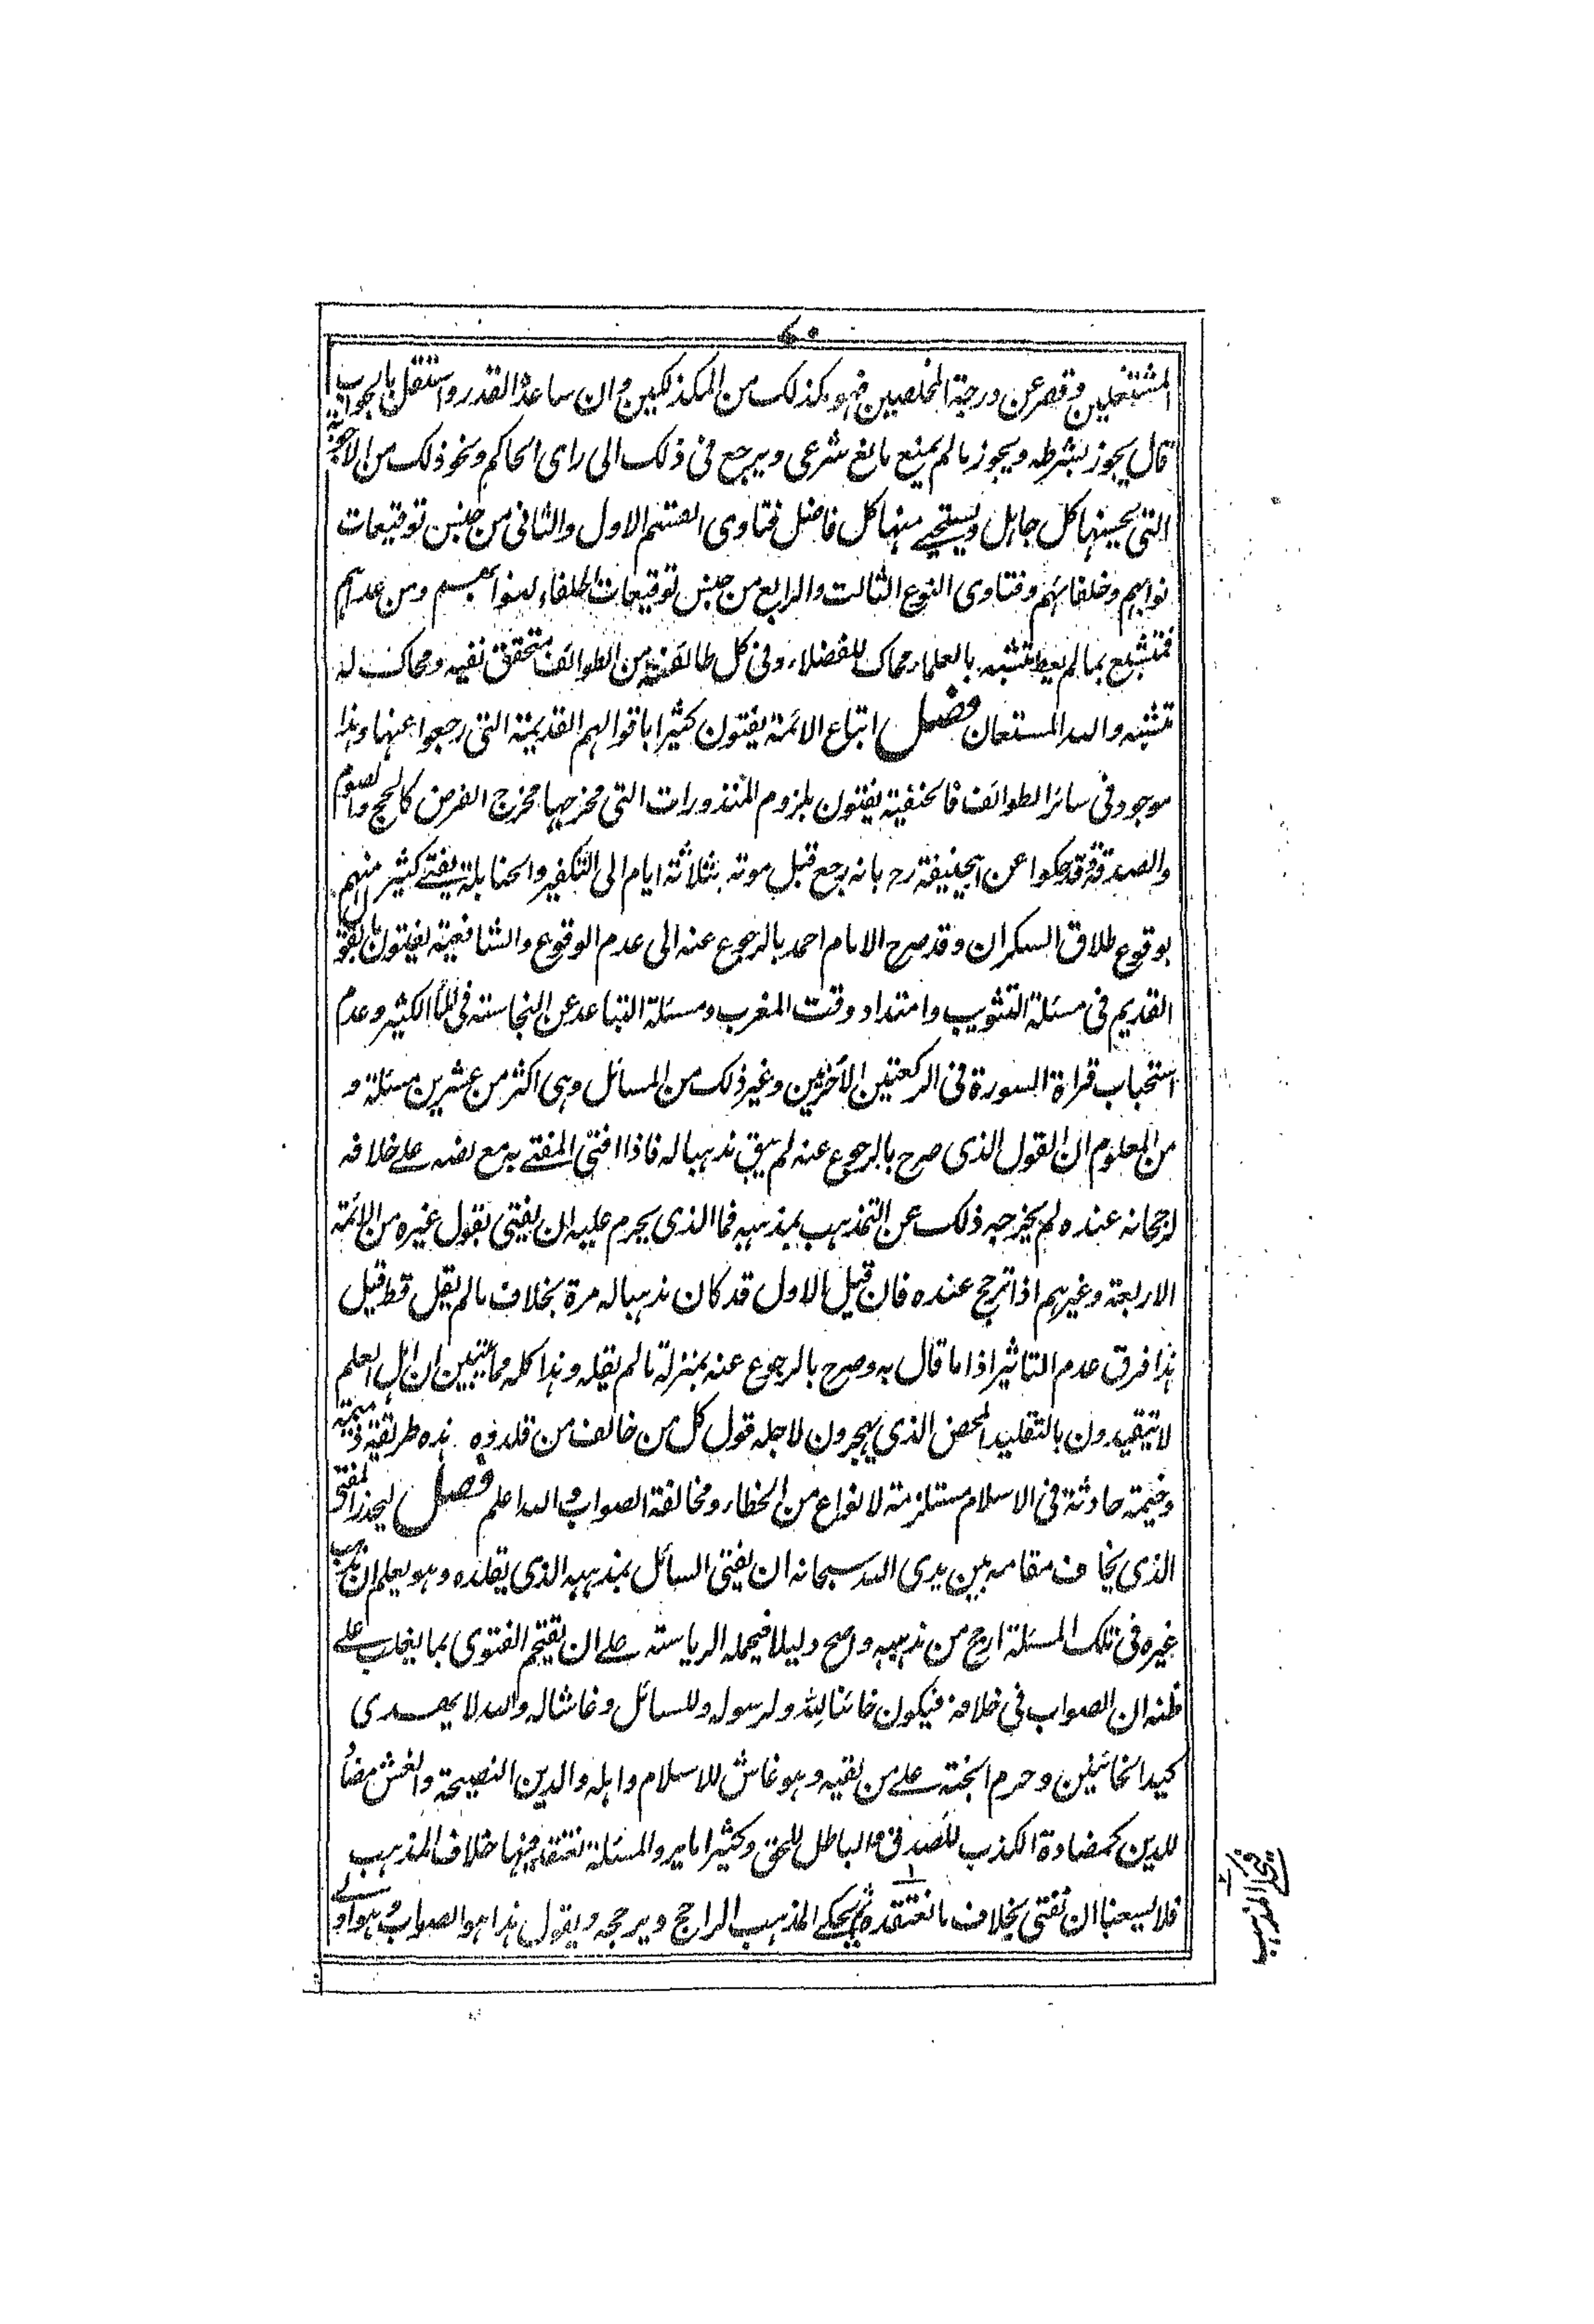 ٤٠
المشتغلين وقصر عن درجة المخلصين فهو مكذلك من المكذلكين وان ساعده القدر واستقل بالجواب
قال يجوز بشرطه ويجوز ما لم يمنع مانع شرعى ويرجع فى ذلك الى راى الحاكم ونحو ذلك من الاجوبة
التى يحسنها كل جاهل ويستحيے منها كل فاضل فتاوى القسم الاول والثانى من جنس توقيعات
نوابهم وخلفائهم وفتاوى النوع الثالث والرابع من جنس توقيعات الخلفاء لنوابهم ومن عداهم
فمتشبع بما لم يعط متشبه بالعلماء محاك للفضلاء وفى كل طائفة من الطوائف متحقق نفيه ومحاك له
متشبه والله المستعان فصل اتباع الائمة يفتون كثيرا باقوالهم القديمة التى رجعوا عنها وهذا
موجود فى سائر الطوائف فالحنفية يفتون بلزوم المنذورات التى مخرجها مخرج الفرض كالحج والصوم
والصدقة وقد حكوا عن ابيحنيفة رح بانه رجع قبل موته بثلاثة ايام الى التكفير والحنابلة يفتے كثير منهم
بوقوع طلاق السكران وقد صرح الامام احمد بالرجوع عنه الى عدم الوقوع والشافعية يفتون بالقول
القديم فى مسئلة التثويب وامتداد وقت المغرب ومسئلة التباعد عن النجاسة فى الماء الكثير وعدم
استحباب قراءة السورة فى الركعتين الأخريين وغير ذلك من المسائل وهى اكثر من عشرين مسئلة و
من المعلوم ان القول الذى صرح بالرجوع عنه لم يبق مذهبا له فاذا افتى المفتے به مع نصه علے خلافه
لرجحانه عنده لم يخرجه ذلك عن التمذهب بمذهبه فما الذى يحرم عليه ان يفتى بقول غيره من الائمة
الاربعة وغيرهم اذا ترجح عنده فان قيل الاول قد كان مذهبا له مرة بخلاف ما لم يقل قط قيل
هذا فرق عدم التاثير اذا ما قال به وصرح بالرجوع عنه بمنزلة ما لم يقله وهذا كله مما يتبين ان اهل العلم
لا يتقيدون بالتقليد المحض الذى يهجرون لاجله قول كل من خالف من قلدوه هذه طريقة ذميمة
وخيمة حادثة فى الاسلام مستلزمة لانواع من الخطاء ومخالفة الصواب والله اعلم فصل ليحذر المفتى
الذى يخاف مقامه بين يدى الله سبحانه ان يفتى السائل بمذهبه الذى يقلده وهو يعلم ان مذهب
غيره فى تلك المسئلة ارجح من مذهبه واصح دليلا فيحمله الرياسة علے ان يقتحم الفتوى بما يغلب علے
ظنه ان الصواب فى خلافه فيكون خائنا لله ولرسوله وللسائل وغاشا له والله لا يهدى
كيد الخائنين وحرم الجنة علے من لقيه وهو غاش للاسلام واهله والدين النصيحة والغش مضاد
للدين كمضادة الكذب للصدق والباطل للحق وكثيرا ما يرد المسئلة نعتقد فيها خلاف المذهب
فلا يسعنا ان نفتى بخلاف ما نعتقده ثم يحكے المذهب الراجح ويرجحه ويقول هذا هو الصواب وهو اولے
فيحكى المذهب